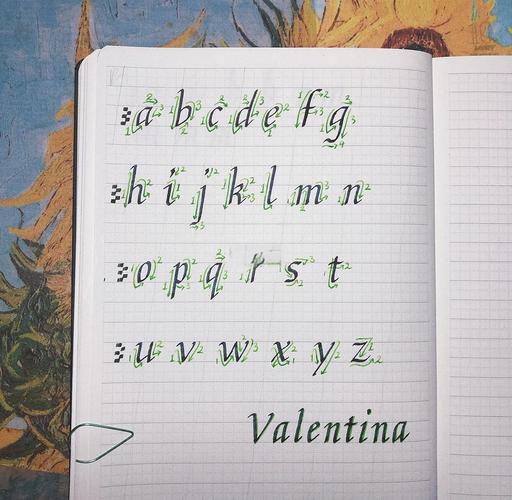 a b c d e f g
h i j k l m n
o p q r s t
u v w x y z
Valentina